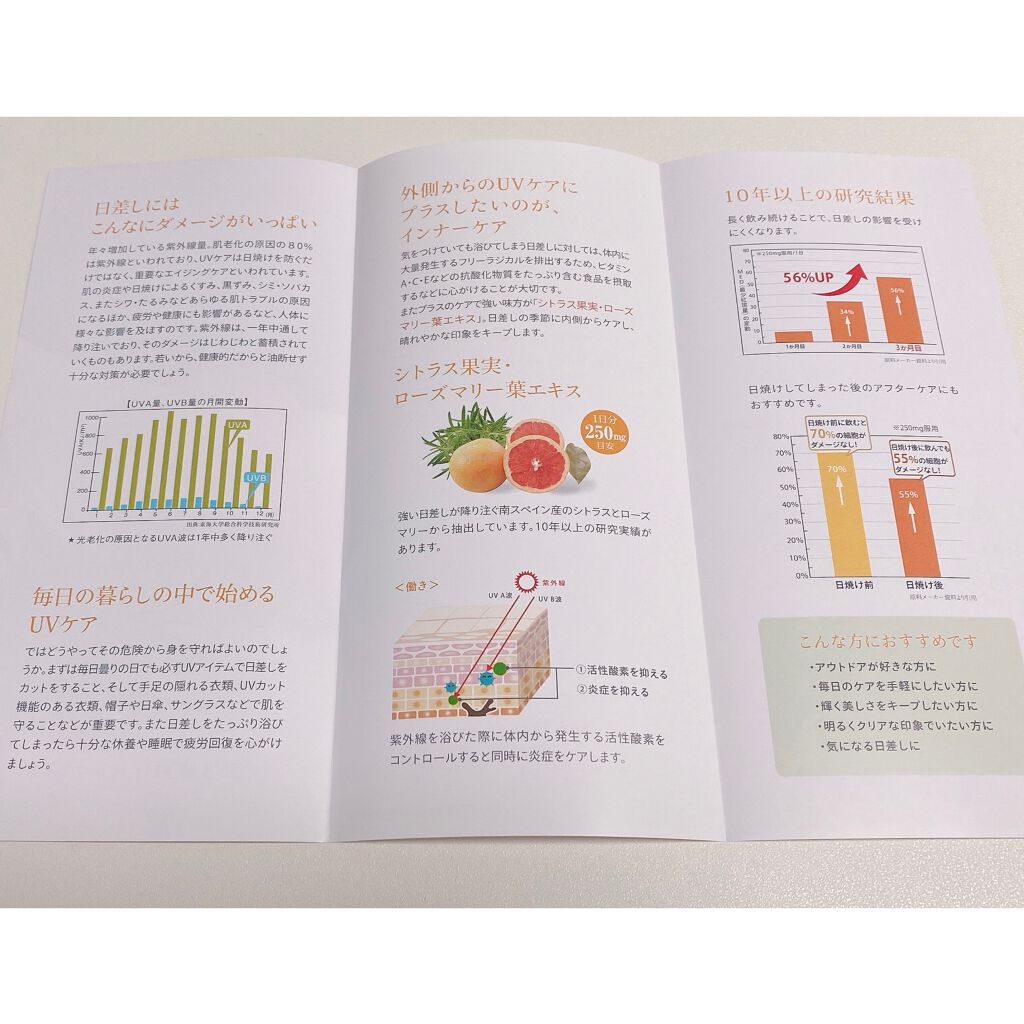 日差しには
こんなにダメージがいっぱい
年々増加している紫外線量。肌老化の原因の80%
は紫外線といわれており、UVケアは日焼けを防ぐだ
けではなく、重要なエイジングケアといわれています。
肌の炎症や日焼けによるくすみ、黒ずみ、シミ・ソバカ
ス、またシワ・たるみなどあらゆる肌トラブルの原因
になるほか、疲労や健康にも影響があるなど、人体に
様々な影響を及ぼすのです。紫外線は、一年中通して
降り注いでおり、そのダメージはじわじわと蓄積されて
いくものもあります。若いから、健康的だからと油断せず
十分な対策が必要でしょう。
【UVA量、UVB量の月間変動】
1000
800
600
400
200
0
UVA
UVB
1 2 3 4 5 6 7 8 9 10 11 12 (月)
出典:東海大学総合科学技術研究所
★光老化の原因となるUVA波は1年中多く降り注ぐ
毎日の暮らしの中で始める
UVケア
ではどうやってその危険から身を守ればよいのでしょ
うか。まずは毎日曇りの日でも必ずUVアイテムで日差しを
カットをすること、そして手足の隠れる衣類、UVカット
機能のある衣類、帽子や日傘、サングラスなどで肌を
守ることなどが重要です。また日差しをたっぷり浴び
てしまったら十分な休養や睡眠で疲労回復を心がけ
ましょう。
外側からのUVケアに
プラスしたいのが、
インナーケア
気をつけていても浴びてしまう日差しに対しては、体内に
大量発生するフリーラジカルを排出するため、ビタミン
A・C・Eなどの抗酸化物質をたっぷり含む食品を摂取
するなどに心がけることが大切です。
またプラスのケアで強い味方が「シトラス果実・ローズ
マリー葉エキス」。日差しの季節に内側からケアし、
晴れやかな印象をキープします。
シトラス果実・
ローズマリー葉エキス
1日分
250mg
目安
強い日差しが降り注ぐ南スペイン産のシトラスとローズ
マリーから抽出しています。10年以上の研究実績が
あります。
＜働き＞
紫外線
UV A波
UV B波
①活性酸素を抑える
②炎症を抑える
紫外線を浴びた際に体内から発生する活性酸素を
コントロールすると同時に炎症をケアします。
10年以上の研究結果
長く飲み続けることで、日差しの影響を受け
にくくなります。
※250mg服用/1日
56%UP
80
70
60
50
40
30
20
10
0
34%
56%
1か月目
2か月目
3か月目
原料メーカー資料より引用
日焼けしてしまった後のアフターケアにも
おすすめです。
日焼け前に飲むと
70%の細胞が
ダメージなし!
※250mg服用
日焼け後に飲んでも
55%の細胞が
ダメージなし!
80%
70%
60%
50%
40%
30%
20%
10%
0%
70%
55%
日焼け前
日焼け後
原料メーカー資料より引用
こんな方におすすめです
・アウトドアが好きな方に
・毎日のケアを手軽にしたい方に
・輝く美しさをキープしたい方に
・明るくクリアな印象でいたい方に
・気になる日差しに